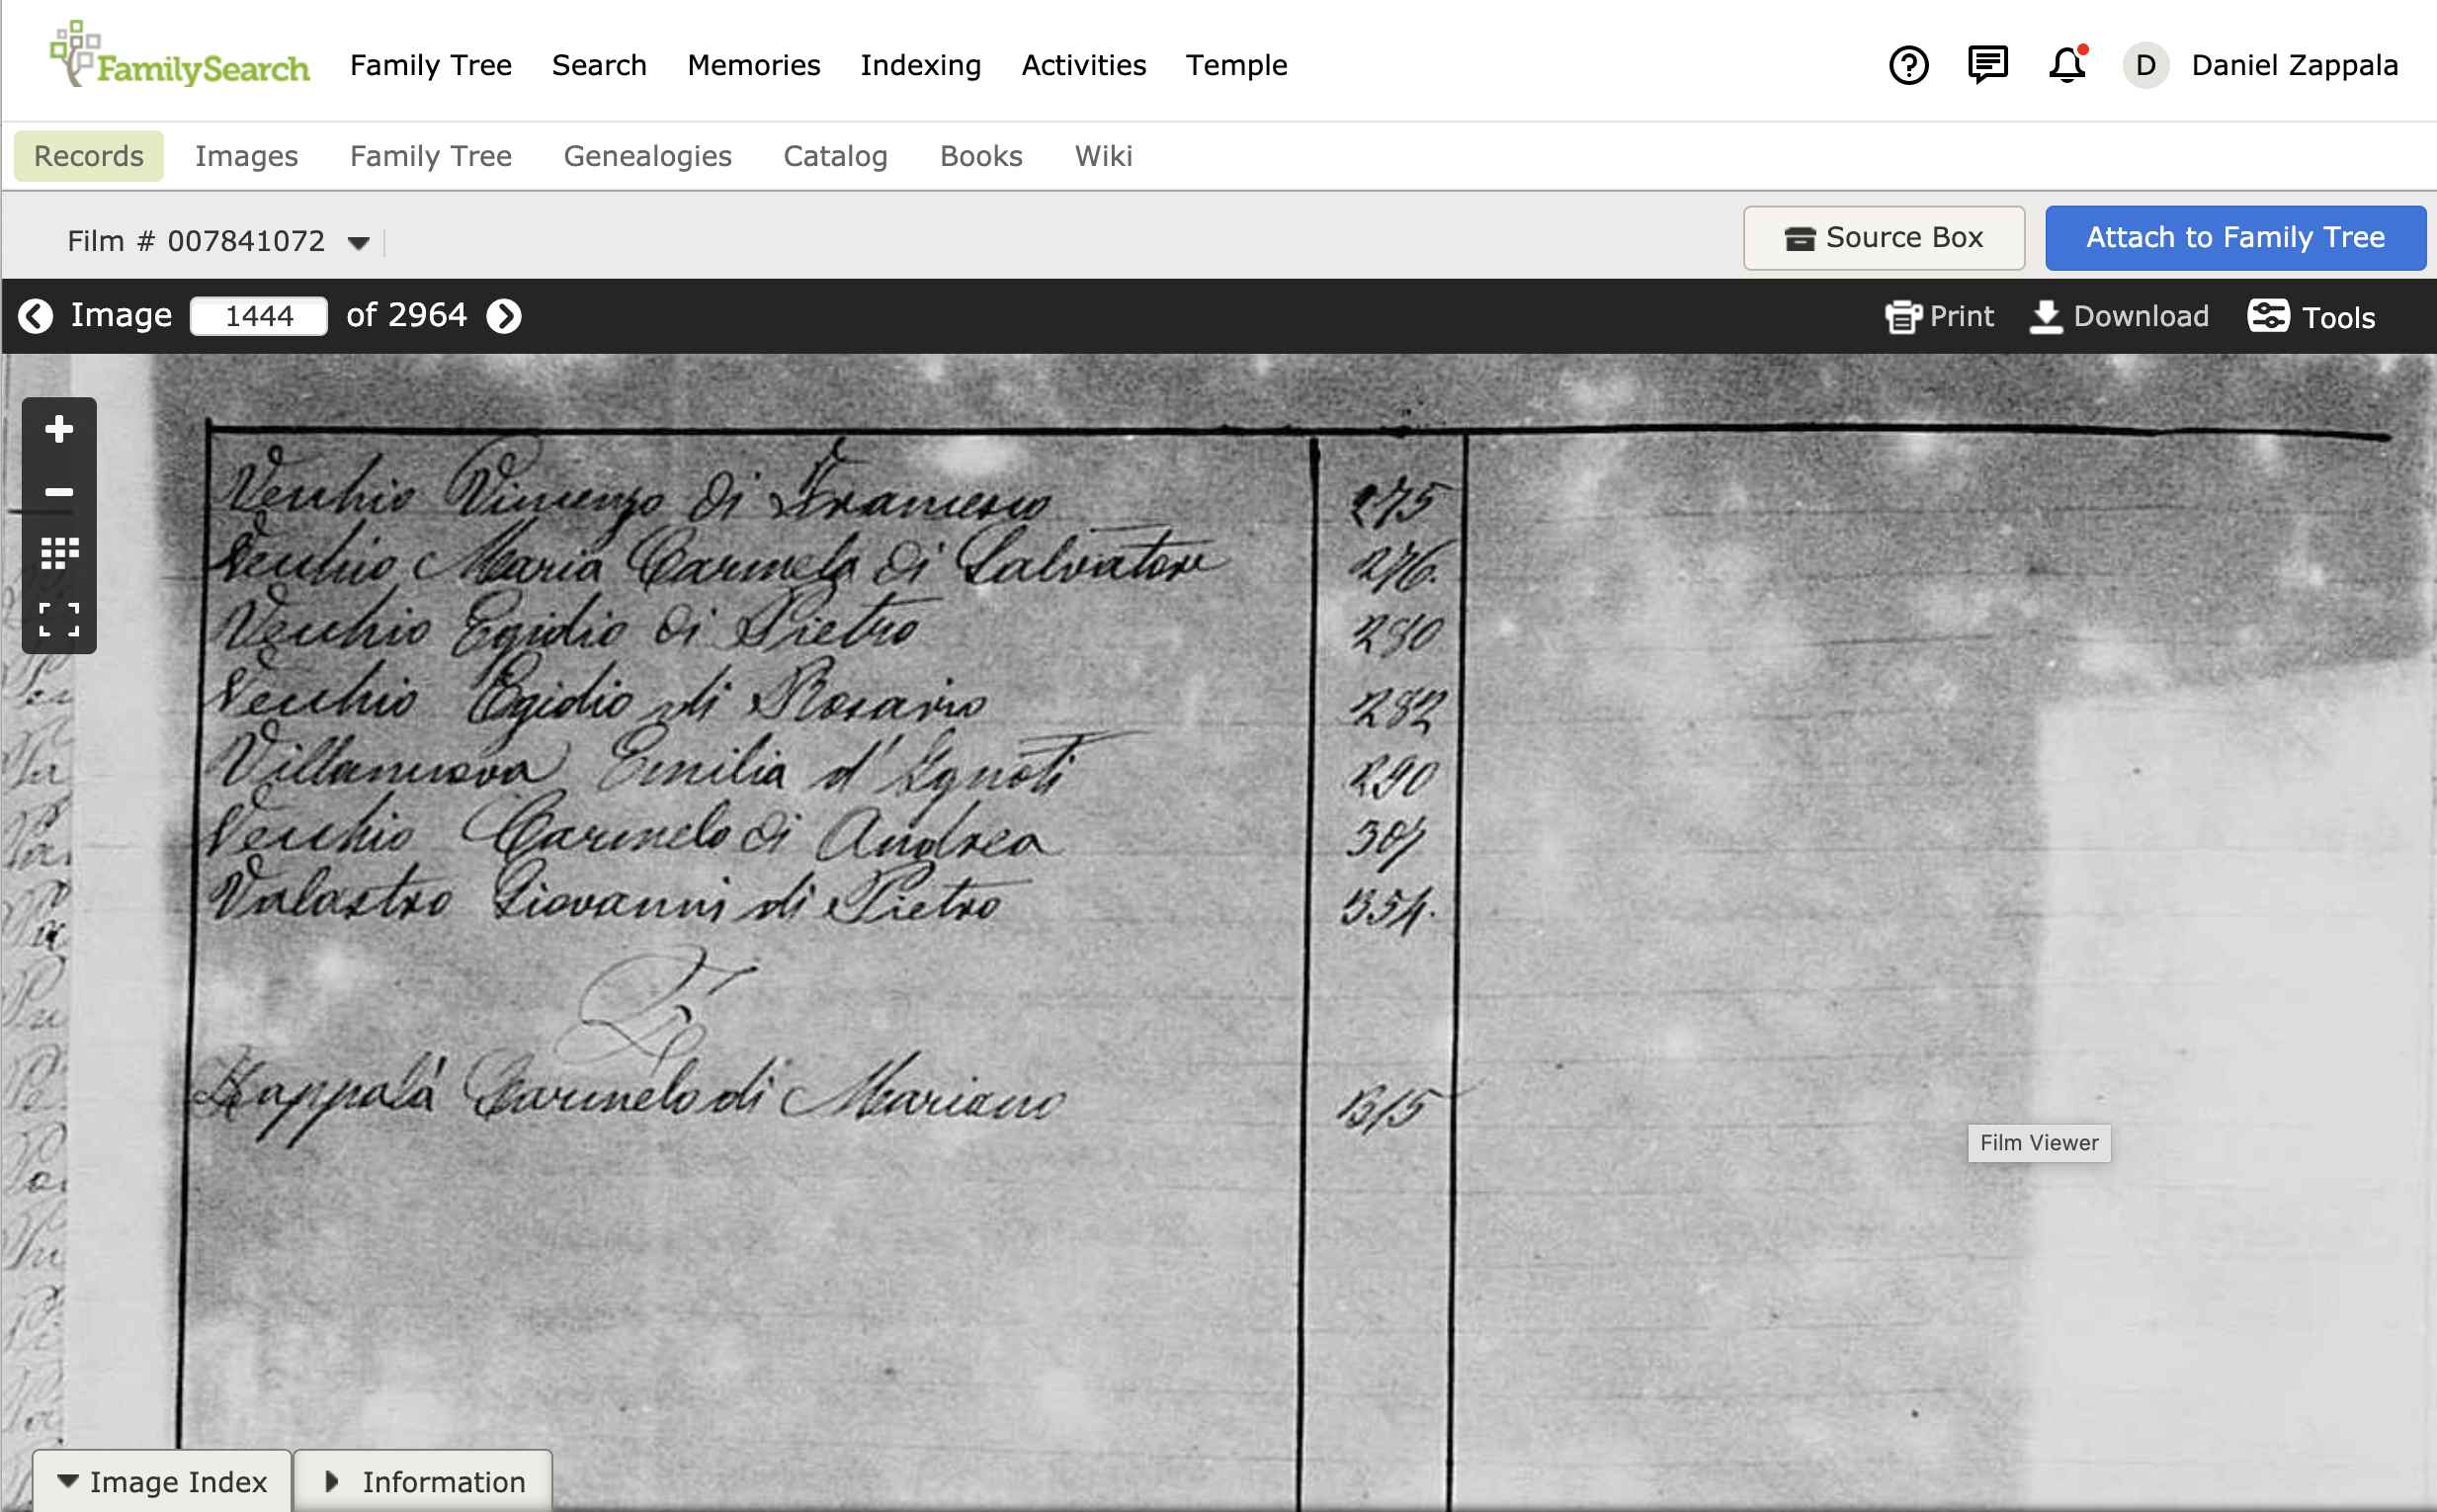 FamilySearch Family Tree Search Memories Indexing Activities Temple D Daniel Zappala
Records Images Family Tree Genealogies Catalog Books Wiki
Film # 007841072 Source Box Attach to Family Tree
Image 1444 of 2964 Print Download Tools
Vecchio Vincenzo di Francesco 275
Vecchio Maria Carmela di Salvatore 276.
Vecchio Egidio di Pietro 280
Vecchio Egidio di Rosario 282
Villanuova Emilia d'Ignoti 290
Vecchio Carmelo di Andrea
Valastro Giovanni di Pietro 354.
Z
Zappalà Carmelo di Mariano 315
Film Viewer
Image Index Information